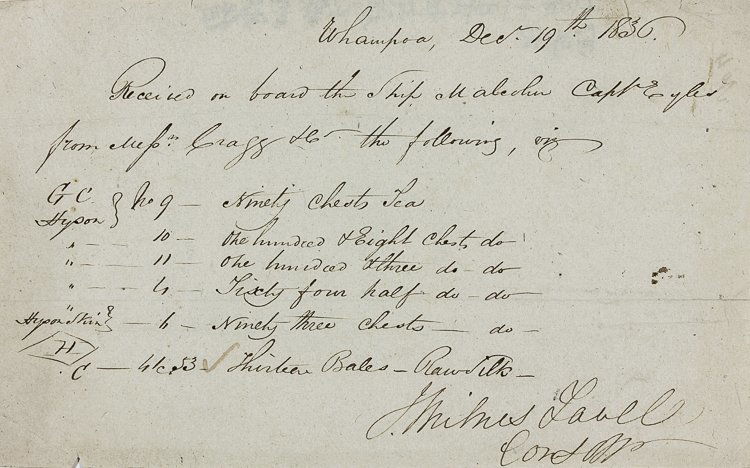 Whampoa, Decr. 19th 1836.
Received on board the Ship Malcolm Captn. Eyles
from Messrs. Cragg & Co the following, viz
G C. No 9 — Ninety chests Tea
Hyson
" — 10 — One hundred & Eight chests do
" — 11 — One hundred & three do - do
" — 4 — Sixty four half do - do
Hyson Skin — 6 — Ninety three chests — do —
H
C — Thirteen Bales — Raw Silk —